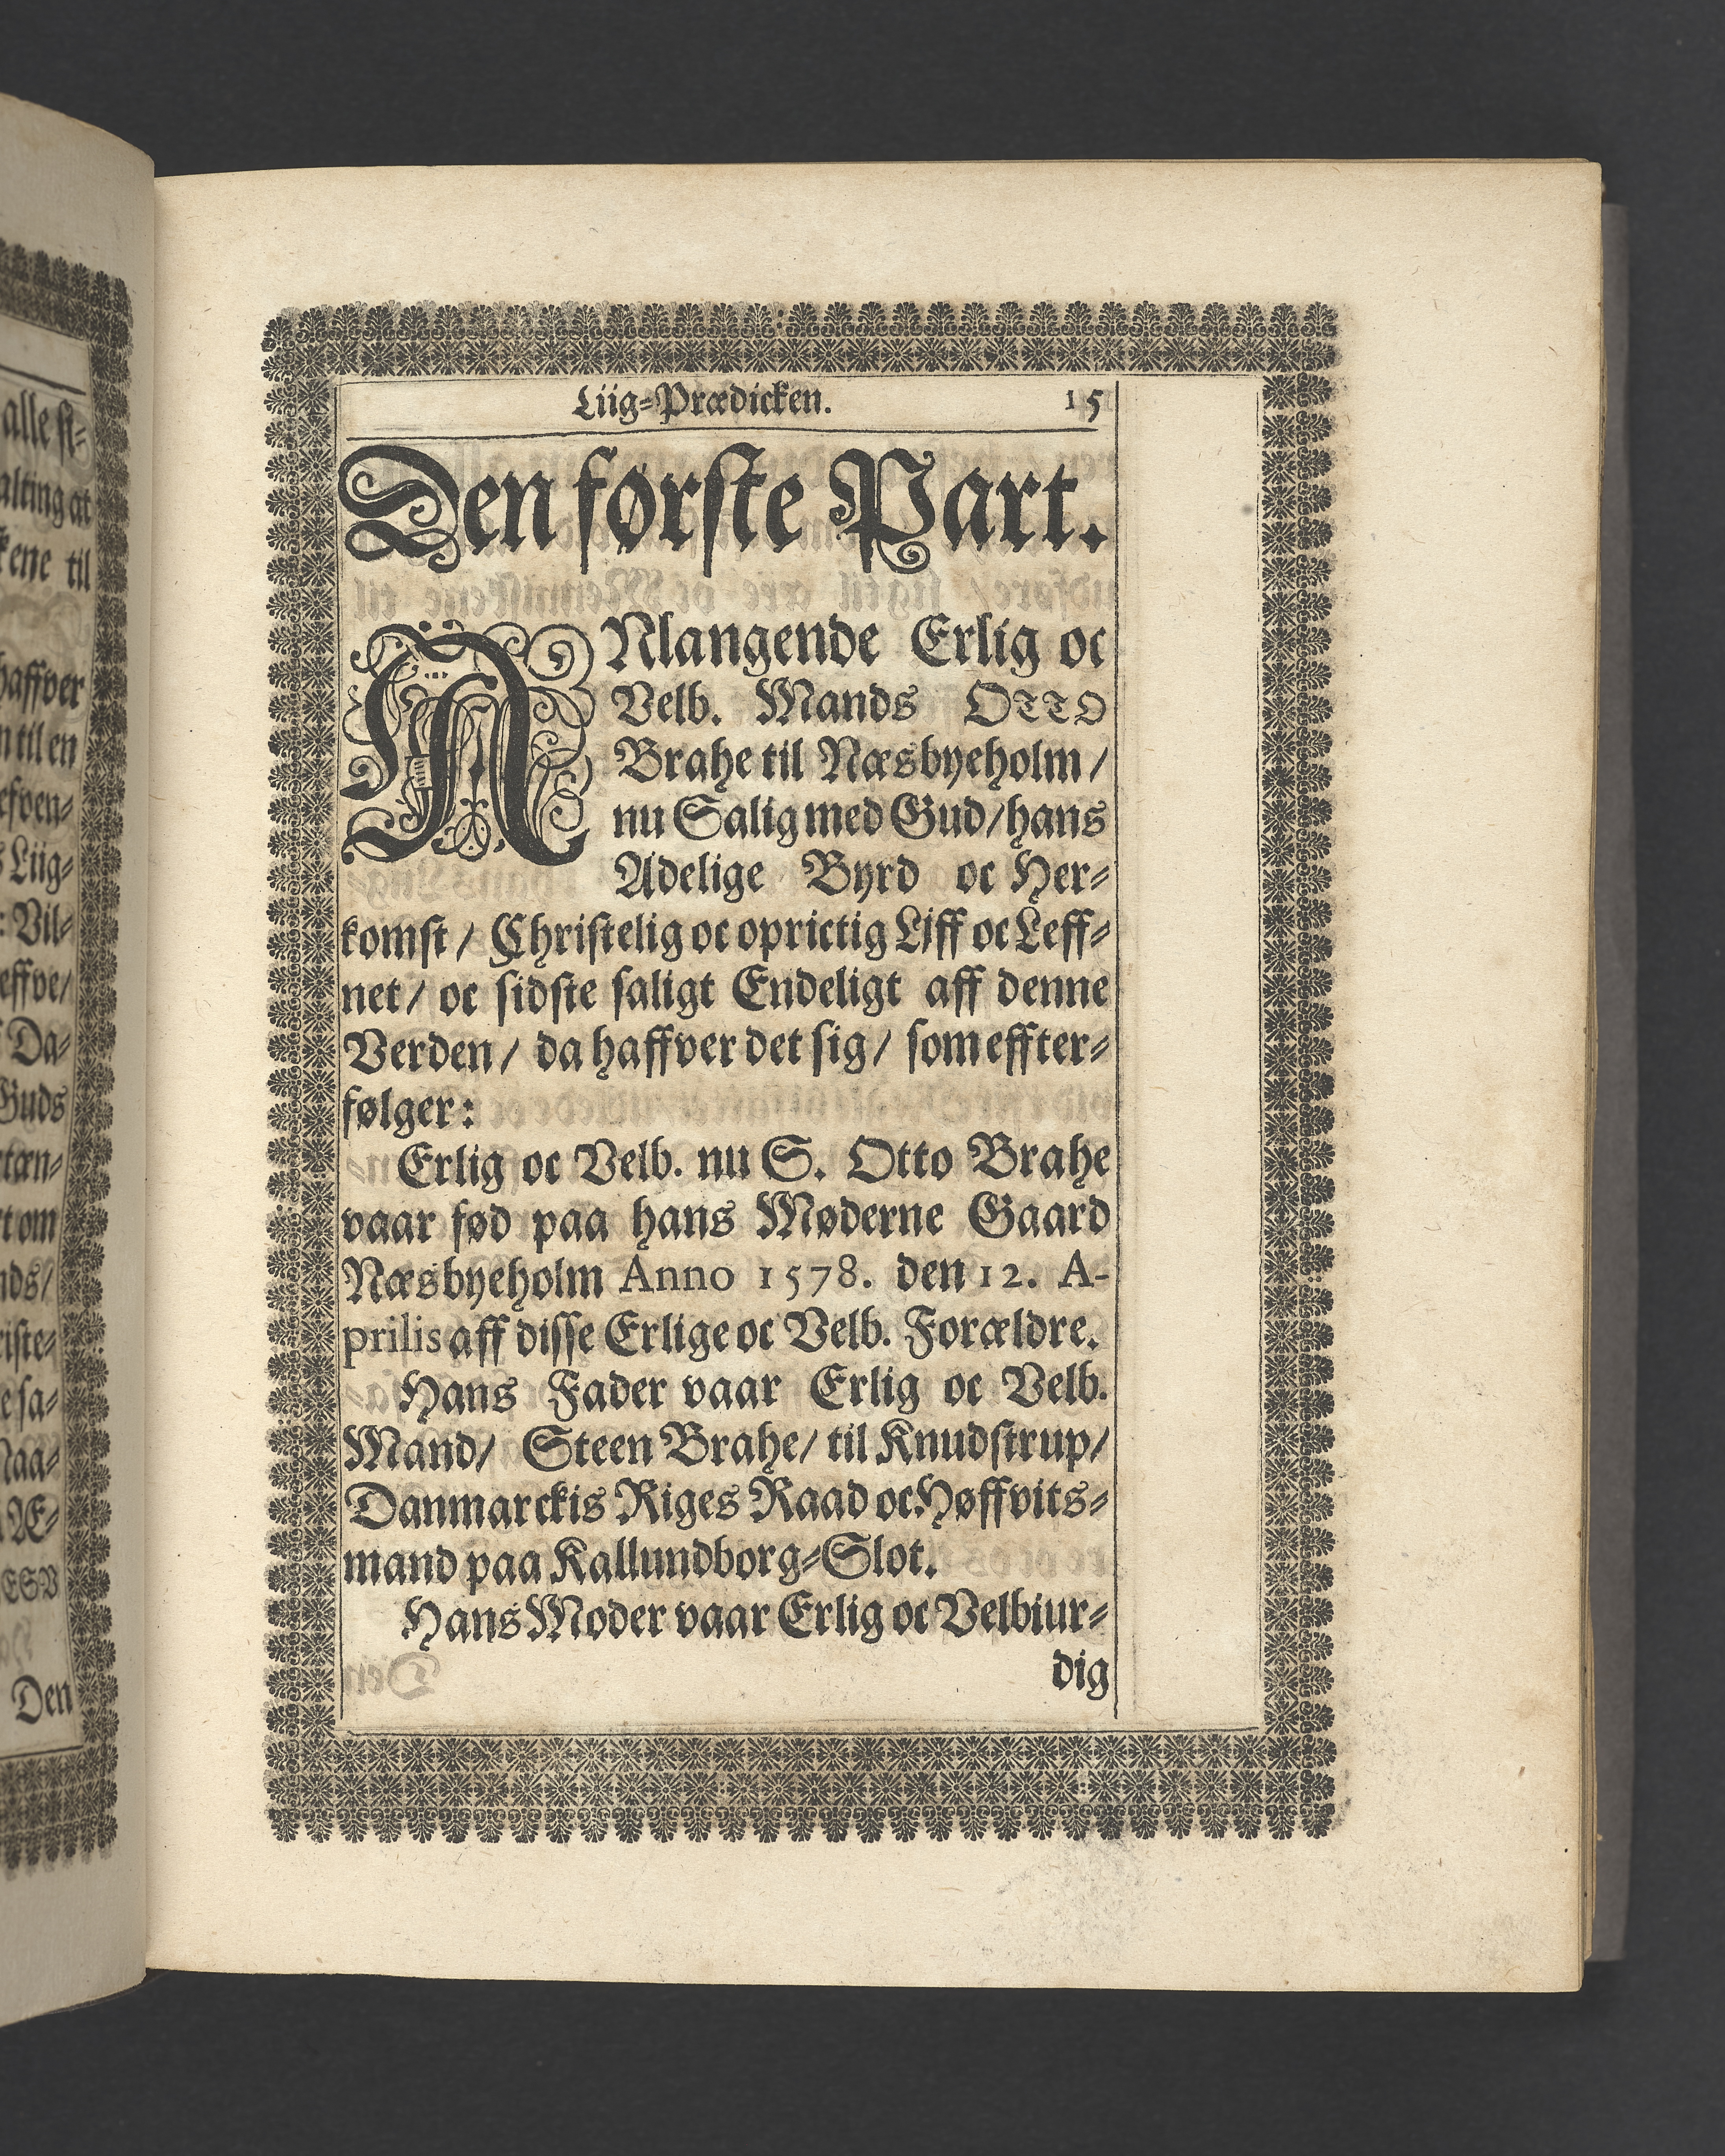 alle si-
alting at
kene til
haffver
n til en
efven-
s Liig-
: Vil-
effve/
Da-
Guds
tæn-
t om
nds/
iste-
e sa-
Naa-
Æ-
ESV
Den
Liig-Prædicken. 15
Den første Part.
ANlangende Erlig oc
Velb. Mands OTTO
Brahe til Næsbyeholm/
nu Salig med Gud/ hans
Adelige Byrd oc Her-
komst/ Christelig oc oprictig Liff oc Leff-
net/ oc sidste saligt Endeligt aff denne
Verden/ da haffver det sig/ som effter-
følger:
Erlig oc Velb. nu S. Otto Brahe
vaar fød paa hans Møderne Gaard
Næsbyeholm Anno 1578. den 12. A-
prilis aff disse Erlige oc Velb. Forældre.
Hans Fader vaar Erlig oc Velb.
Mand/ Steen Brahe/ til Knudstrup/
Danmarckis Riges Raad oc Høffvits-
mand paa Kallundborg-Slot.
Hans Moder vaar Erlig oc Velbiur-
dig